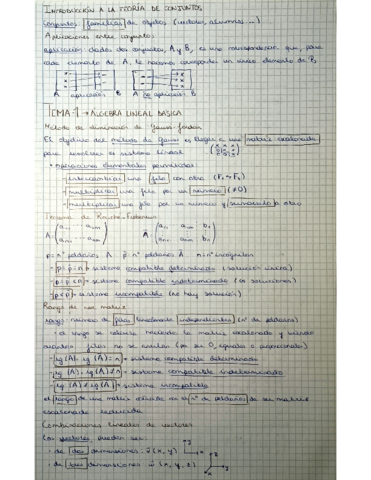 INTRODUCCIÓN A LA TEORÍA DE CONJUNTOS
Conjuntos: familias de objetos (vectores, alumnos ...)
Aplicaciones entre conjuntos:
Aplicación: dados dos conjuntos, A y B, es una correspondencia que, para
cada elemento de A, le hacemos corresponder un único elemento de B.
A aplicación B A no aplicación B
TEMA-1 → ÁLGEBRA LINEAL BÁSICA
Método de eliminación de Gauss-Jordan
El objetivo del método de Gauss es llegar a una matriz escalonada
para resolver el sistema lineal.
• Operaciones elementales permitidas:
- intercambiar una fila con otra
- multiplicar una fila por un número (≠0)
- multiplicar una fila por un número y sumárselo a otra
Teorema de Rouché-Frobenius
A = A =
p = nº peldaños A p̄ = nº peldaños Ā n = nº incógnitas
- p = p̄ = n → sistema compatible determinado (solución única)
- p = p̄ < n → sistema compatible indeterminado (∞ soluciones)
- p < p̄ → sistema incompatible (no hay solución)
Rango de una matriz
rango: número de filas linealmente independientes (nº de peldaños)
• el rango se obtiene haciendo la matriz escalonada y viendo
cuántas filas no se anulan (por ser 0, iguales o proporcionales)
- rg (A) = rg (Ā) = n → sistema compatible determinado
- rg (A) = rg (Ā) ≠ n → sistema compatible indeterminado
- rg (A) ≠ rg (Ā) → sistema incompatible
el rango de una matriz es nº de peldaños de su matriz
escalonada reducida
Combinaciones lineales de vectores
Los vectores pueden ser:
- de dos dimensiones: (x, y)
- de tres dimensiones: (x, y, z)